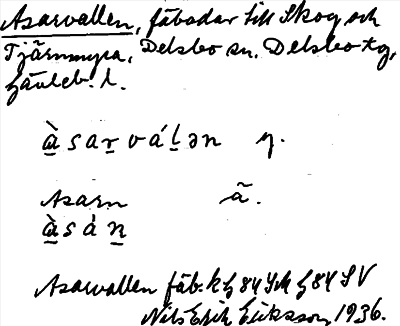 Asarvallen, fäbodar till Skog och
Tjärnmyra, Delsbo sn, Delsbo tg,
Gävleb. l.
à̱ s a ṟ v á ḻ ə n y.
Asarn ã.
à̱ s á ṉ
Asarvallen fäb. k
Nils Erik Eriksson, 1936.